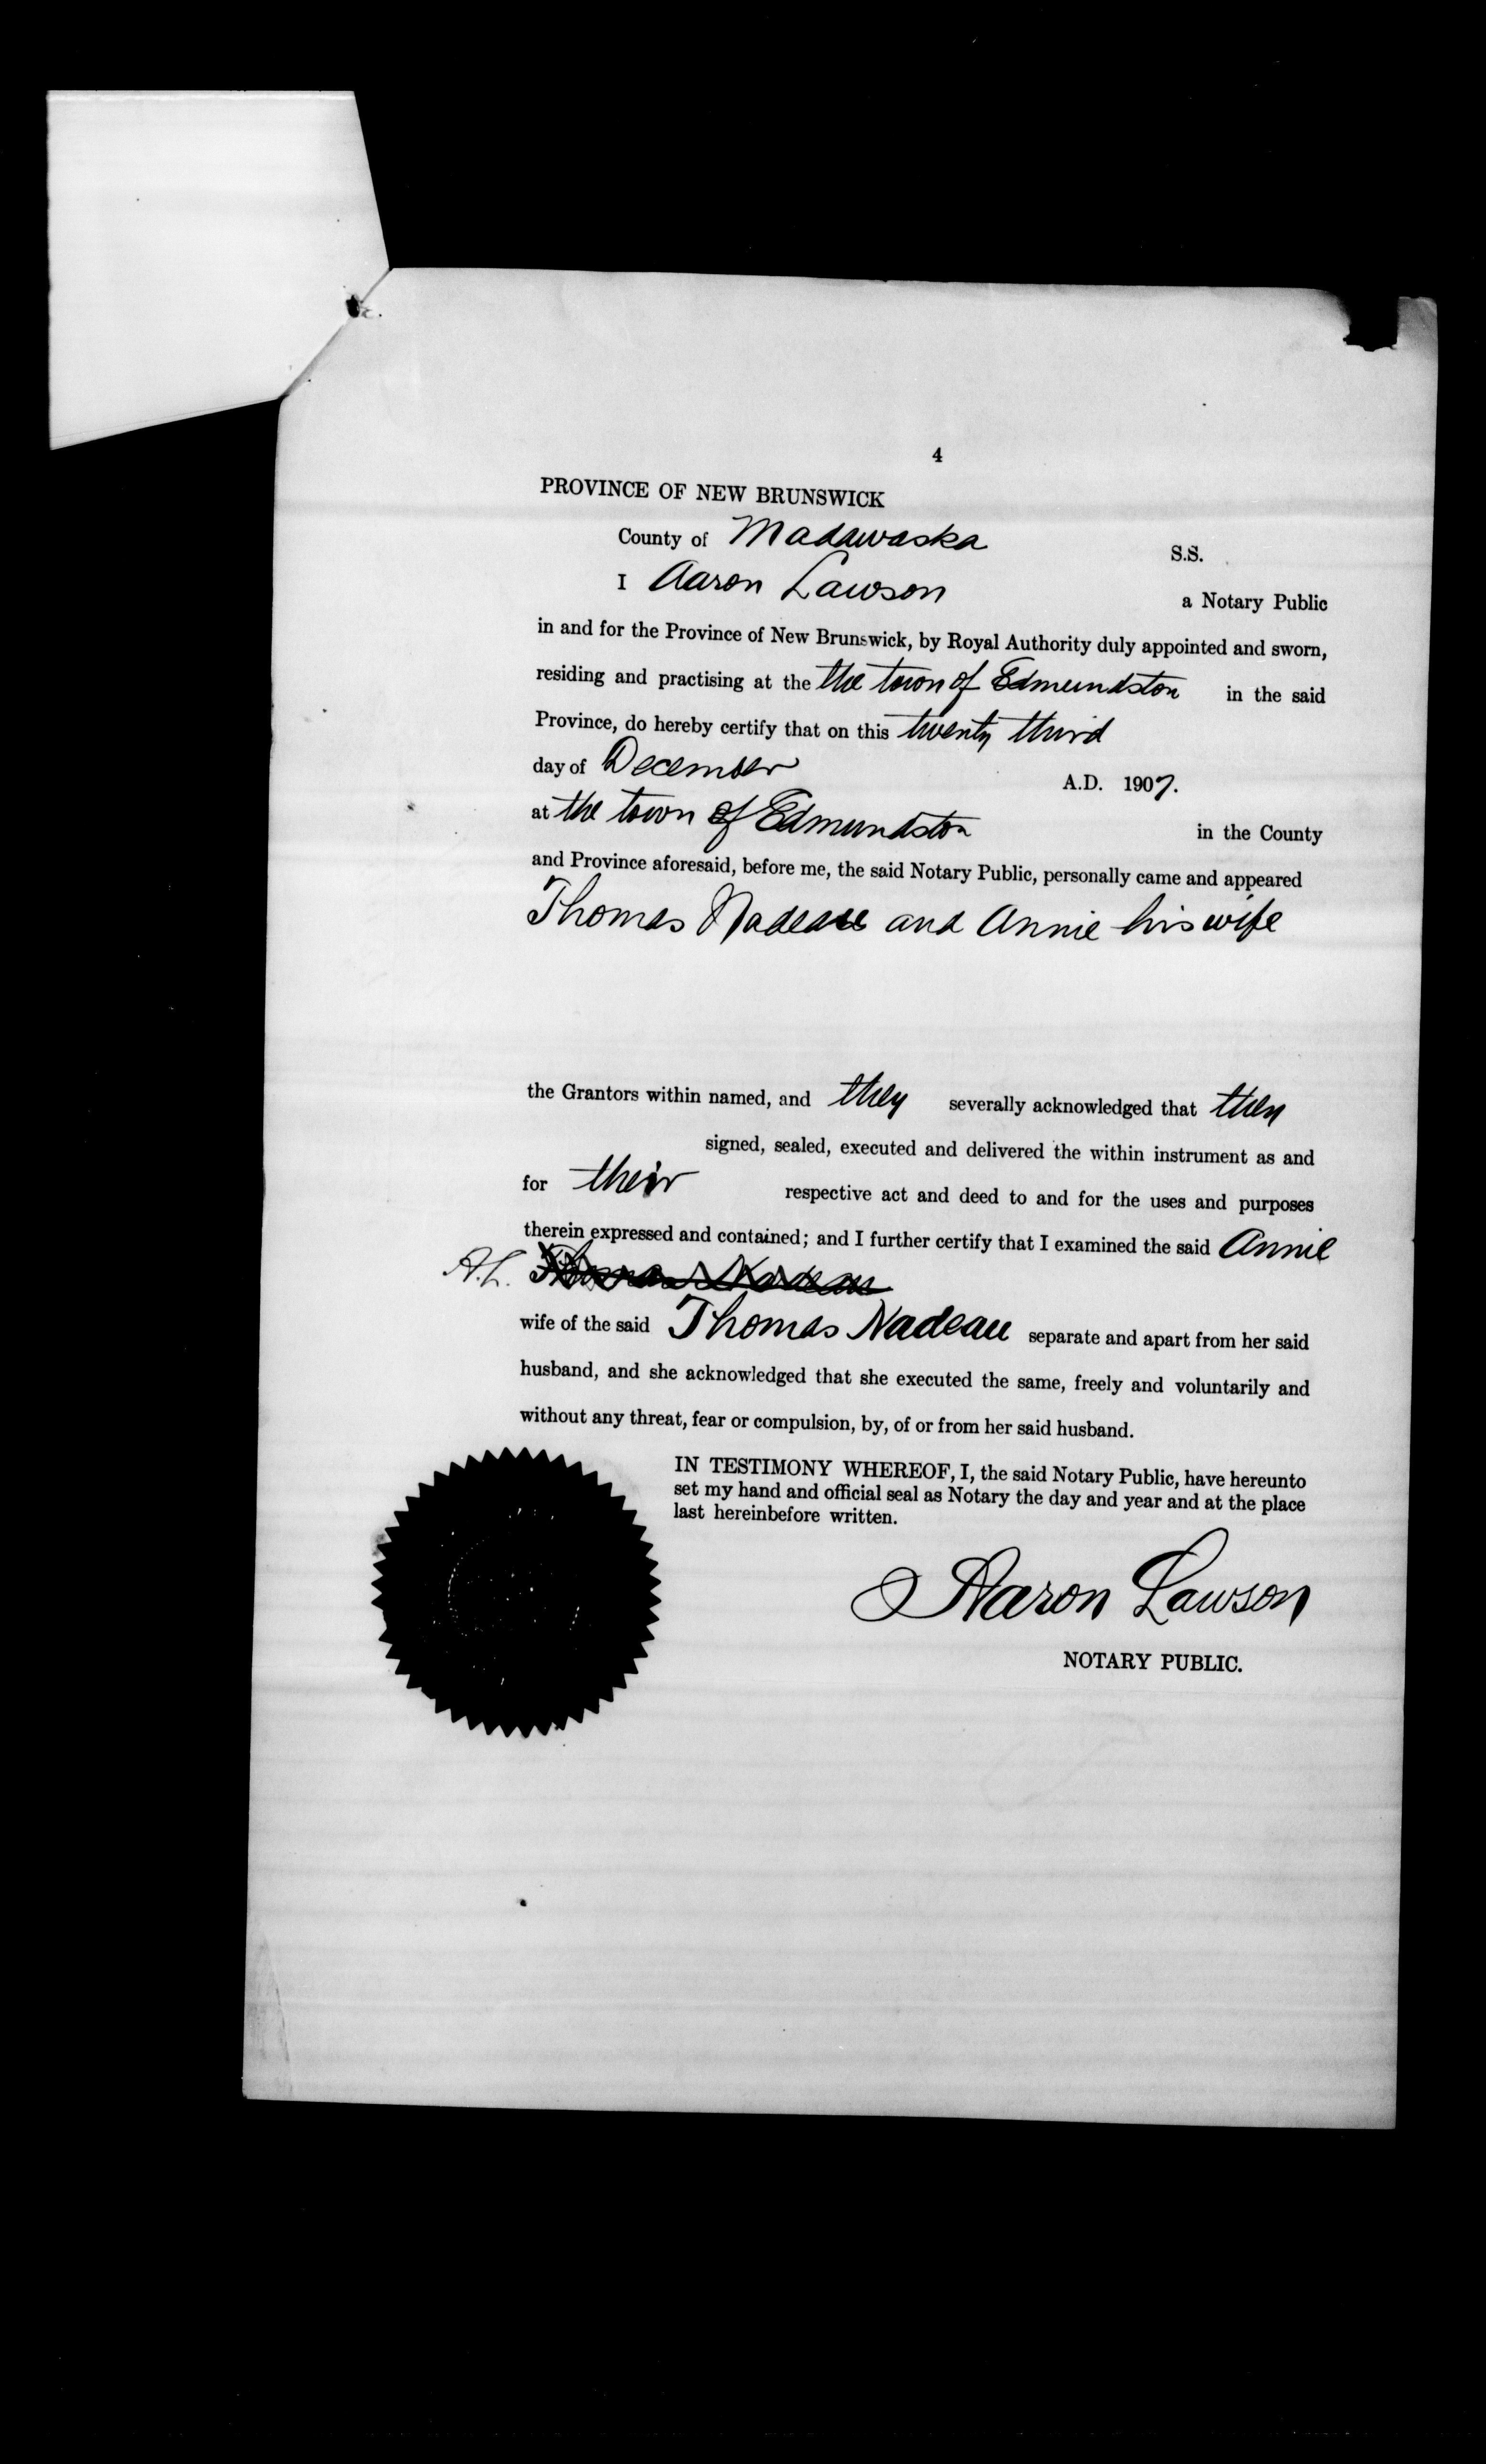 4
PROVINCE OF NEW BRUNSWICK
County of Madawaska S.S.
I Aaron Lawson a Notary Public
in and for the Province of New Brunswick, by Royal Authority duly appointed and sworn,
residing and practising at the the town of Edmundston in the said
Province, do hereby certify that on this twenty third
day of December A.D. 1907.
at the town of Edmundston in the County
and Province aforesaid, before me, the said Notary Public, personally came and appeared
Thomas Nadeau and Annie his wife
the Grantors within named, and they severally acknowledged that they
signed, sealed, executed and delivered the within instrument as and
for their respective act and deed to and for the uses and purposes
therein expressed and contained; and I further certify that I examined the said Annie
A.L. Thomas Nadeau
wife of the said Thomas Nadeau separate and apart from her said
husband, and she acknowledged that she executed the same, freely and voluntarily and
without any threat, fear or compulsion, by, of or from her said husband.
IN TESTIMONY WHEREOF, I, the said Notary Public, have hereunto
set my hand and official seal as Notary the day and year and at the place
last hereinbefore written.
Aaron Lawson
NOTARY PUBLIC.